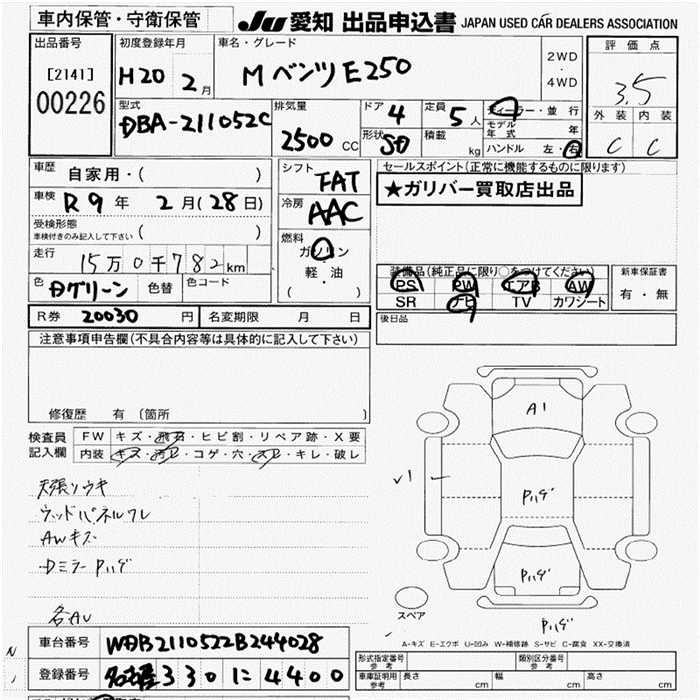 車内保管・守衛保管
JU 愛知 出品申込書 JAPAN USED CAR DEALERS ASSOCIATION
出品番号
[2141]
00226
初度登録年月
H20 2月
車名・グレード
MベンツE250
2WD
・
4WD
評価点
3.5
外装 内装
C C
型式
DBA-211052C
排気量
2500 CC
ドア 4
形状 SD
定員 5人
積載 kg
ディーラー・並行
モデル年式 年
ハンドル 左・右
車歴 自家用・( )
車検 R9年 2月(28日)
受検形態
車検付きのみ記入して下さい ( )
走行 15万0千782km
色 Dグリーン 色替 色コード
シフト FAT
冷房 AAC
燃料
ガソリン
軽・油
( )
セールスポイント(正常に機能するものに限ります)
★ガリバー買取店出品
装備品(純正品に限り○をつけてください)
PS PW エアB AW
SR ナビ TV カワシート
新車保証書
有・無
後日品
R券 20030円 名変期限 月 日
注意事項申告欄(不具合内容等は具体的に記入して下さい)
修復歴 有 〔箇所 〕
検査員記入欄
FW キズ・飛石・ヒビ割・リペア跡・X要
内装 キズ・汚レ・コゲ・穴・スレ・キレ・破レ
天張ソウキ
ウッドパネルワレ
AWキズ
Dミラー Pハゲ
各AU
A1
Pハゲ
Pハゲ
Pハゲ
スペア
A-キズ E-エクボ U-凹み W-補修跡 S-サビ C-腐食 XX-交換済
車台番号 WDB2110522B244028
登録番号 名古屋330に4400
形式指定番号 参考
類別区分番号 参考
車庫証明用 参考 長さ cm 幅 cm 高さ cm